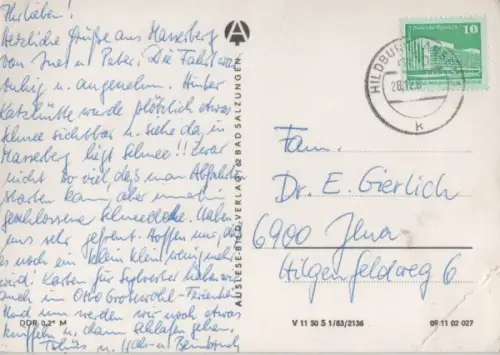 Ihr Lieben!
Herzliche Grüße aus Masserberg
von Ines u. Peter. Die Fahrt war
ruhig u. angenehm. Hinter
Katzhütte wurde plötzlich etwas
Schnee sichtbar u. siehe da, in
Masserberg liegt Schnee!! Zwar
nicht so viel, daß man Abfahrt
starten kann, aber immerhin
geschlossene Schneedecke. Haben
uns sehr gefreut. Hoffen nur, daß
es noch ein klein klein wenig mehr
wird! Karten für Sylvester haben wir
auch im Otto Grotewohl-Ferienheim
Und nun werden wir noch etwas
knuffeln u. dann schlafen gehen.
Tschüs u.
DDR 0,2* M
A
AUSLESE-BILD-VERLAG 62 BAD SALZUNGEN
V 11 50 S 1/83/2136
09 11 02 027
10
HILDBURGHAUSEN
28.12.8
k
Fam.
Dr. E. Gierlich
6900 Jena
Hilgenfeldweg 6